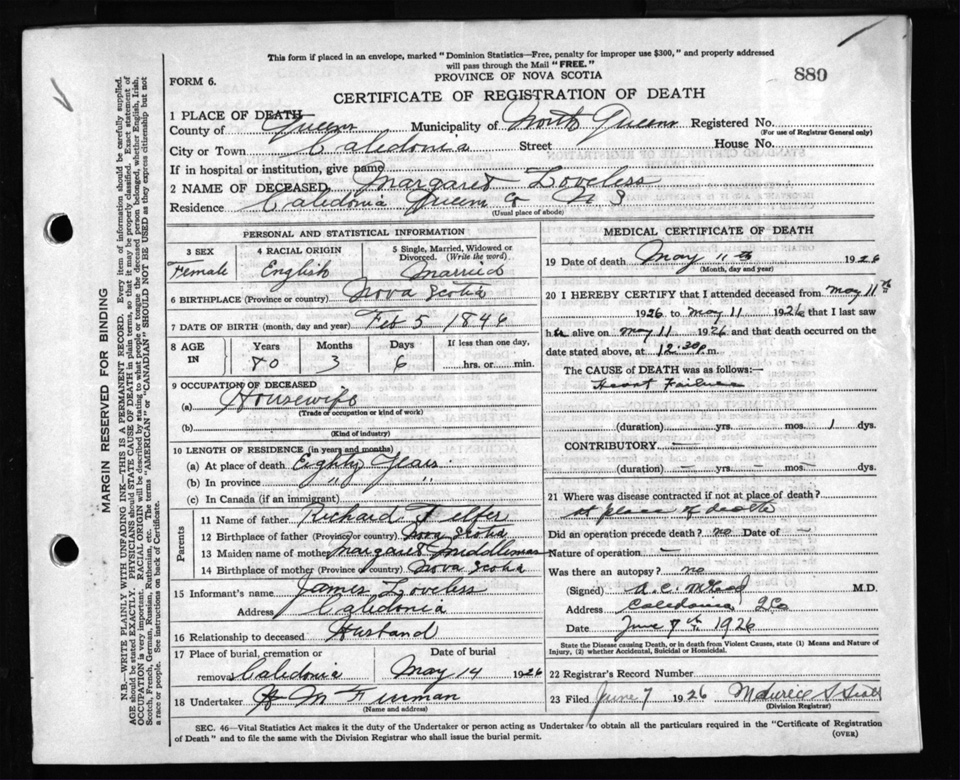 This form if placed in an envelope, marked "Dominion Statistics—Free, penalty for improper use $300," and properly addressed
will pass through the Mail "FREE."
PROVINCE OF NOVA SCOTIA
889
FORM 6.
CERTIFICATE OF REGISTRATION OF DEATH
1 PLACE OF DEATH
County of Queens Municipality of North Queens Registered No.
(For use of Registrar General only)
City or Town Caledonia Street House No.
If in hospital or institution, give name
2 NAME OF DECEASED Margaret Loveless
Residence Caledonia Queens Co N S
(Usual place of abode)
PERSONAL AND STATISTICAL INFORMATION
3 SEX 4 RACIAL ORIGIN 5 Single, Married, Widowed or
Divorced. (Write the word)
Female English Married
6 BIRTHPLACE (Province or country) Nova Scotia
7 DATE OF BIRTH (month, day and year) Feb 5 1846
8 AGE IN Years Months Days If less than one day,
80 3 6 hrs. or min.
9 OCCUPATION OF DECEASED
(a) Housewife
(Trade or occupation or kind of work)
(b)
(Kind of industry)
10 LENGTH OF RESIDENCE (in years and months)
(a) At place of death Eighty Years
(b) In province " "
(c) In Canada (if an immigrant)
Parents
11 Name of father Richard Telfer
12 Birthplace of father (Province or country) Nova Scotia
13 Maiden name of mother Margaret Middlemas
14 Birthplace of mother (Province or country) Nova Scotia
15 Informant's name James Loveless
Address Caledonia
16 Relationship to deceased Husband
17 Place of burial, cremation or Date of burial
removal Caledonia May 14 1926
18 Undertaker H M Furman
(Name and address)
MEDICAL CERTIFICATE OF DEATH
19 Date of death May 11th 1926
(Month, day and year)
20 I HEREBY CERTIFY that I attended deceased from May 11th
1926 to May 11 1926 that I last saw
her alive on May 11 1926 and that death occurred on
date stated above, at 12.30 p.m.
The CAUSE of DEATH was as follows:—
Heart Failure
(duration) yrs. mos. 1 dys.
CONTRIBUTORY —
(duration) — yrs. — mos. — dys.
21 Where was disease contracted if not at place of death?
at place of death
Did an operation precede death? no Date of —
Nature of operation —
Was there an autopsy? no
(Signed) A. C. McLeod M.D.
Address Caledonia, Q Co
Date June 7th 1926
State the Disease causing Death, or in death from Violent Causes, state (1) Means and Nature of
Injury, (2) whether Accidental, Suicidal or Homicidal.
22 Registrar's Record Number
23 Filed June 7 1926 Maurice S Scott
(Division Registrar)
SEC. 46—Vital Statistics Act makes it the duty of the Undertaker or person acting as Undertaker to obtain all the particulars required in the "Certificate of Registration
of Death" and to file the same with the Division Registrar who shall issue the burial permit.
(OVER)
MARGIN RESERVED FOR BINDING
N.B.—WRITE PLAINLY WITH UNFADING INK—THIS IS A PERMANENT RECORD. Every item of information should be carefully supplied.
AGE should be stated EXACTLY. PHYSICIANS should STATE CAUSE OF DEATH in plain terms, so that it may be properly classified. Exact statement of
OCCUPATION is very important. RACIAL ORIGIN will be described by stating to what people or tongue the deceased person belonged, whether English, Irish,
Scotch, French, German, Russian, Ruthenian, etc. The terms "AMERICAN" or "CANADIAN" SHOULD NOT BE USED as they express citizenship but not
a race or people. See instructions on back of Certificate.